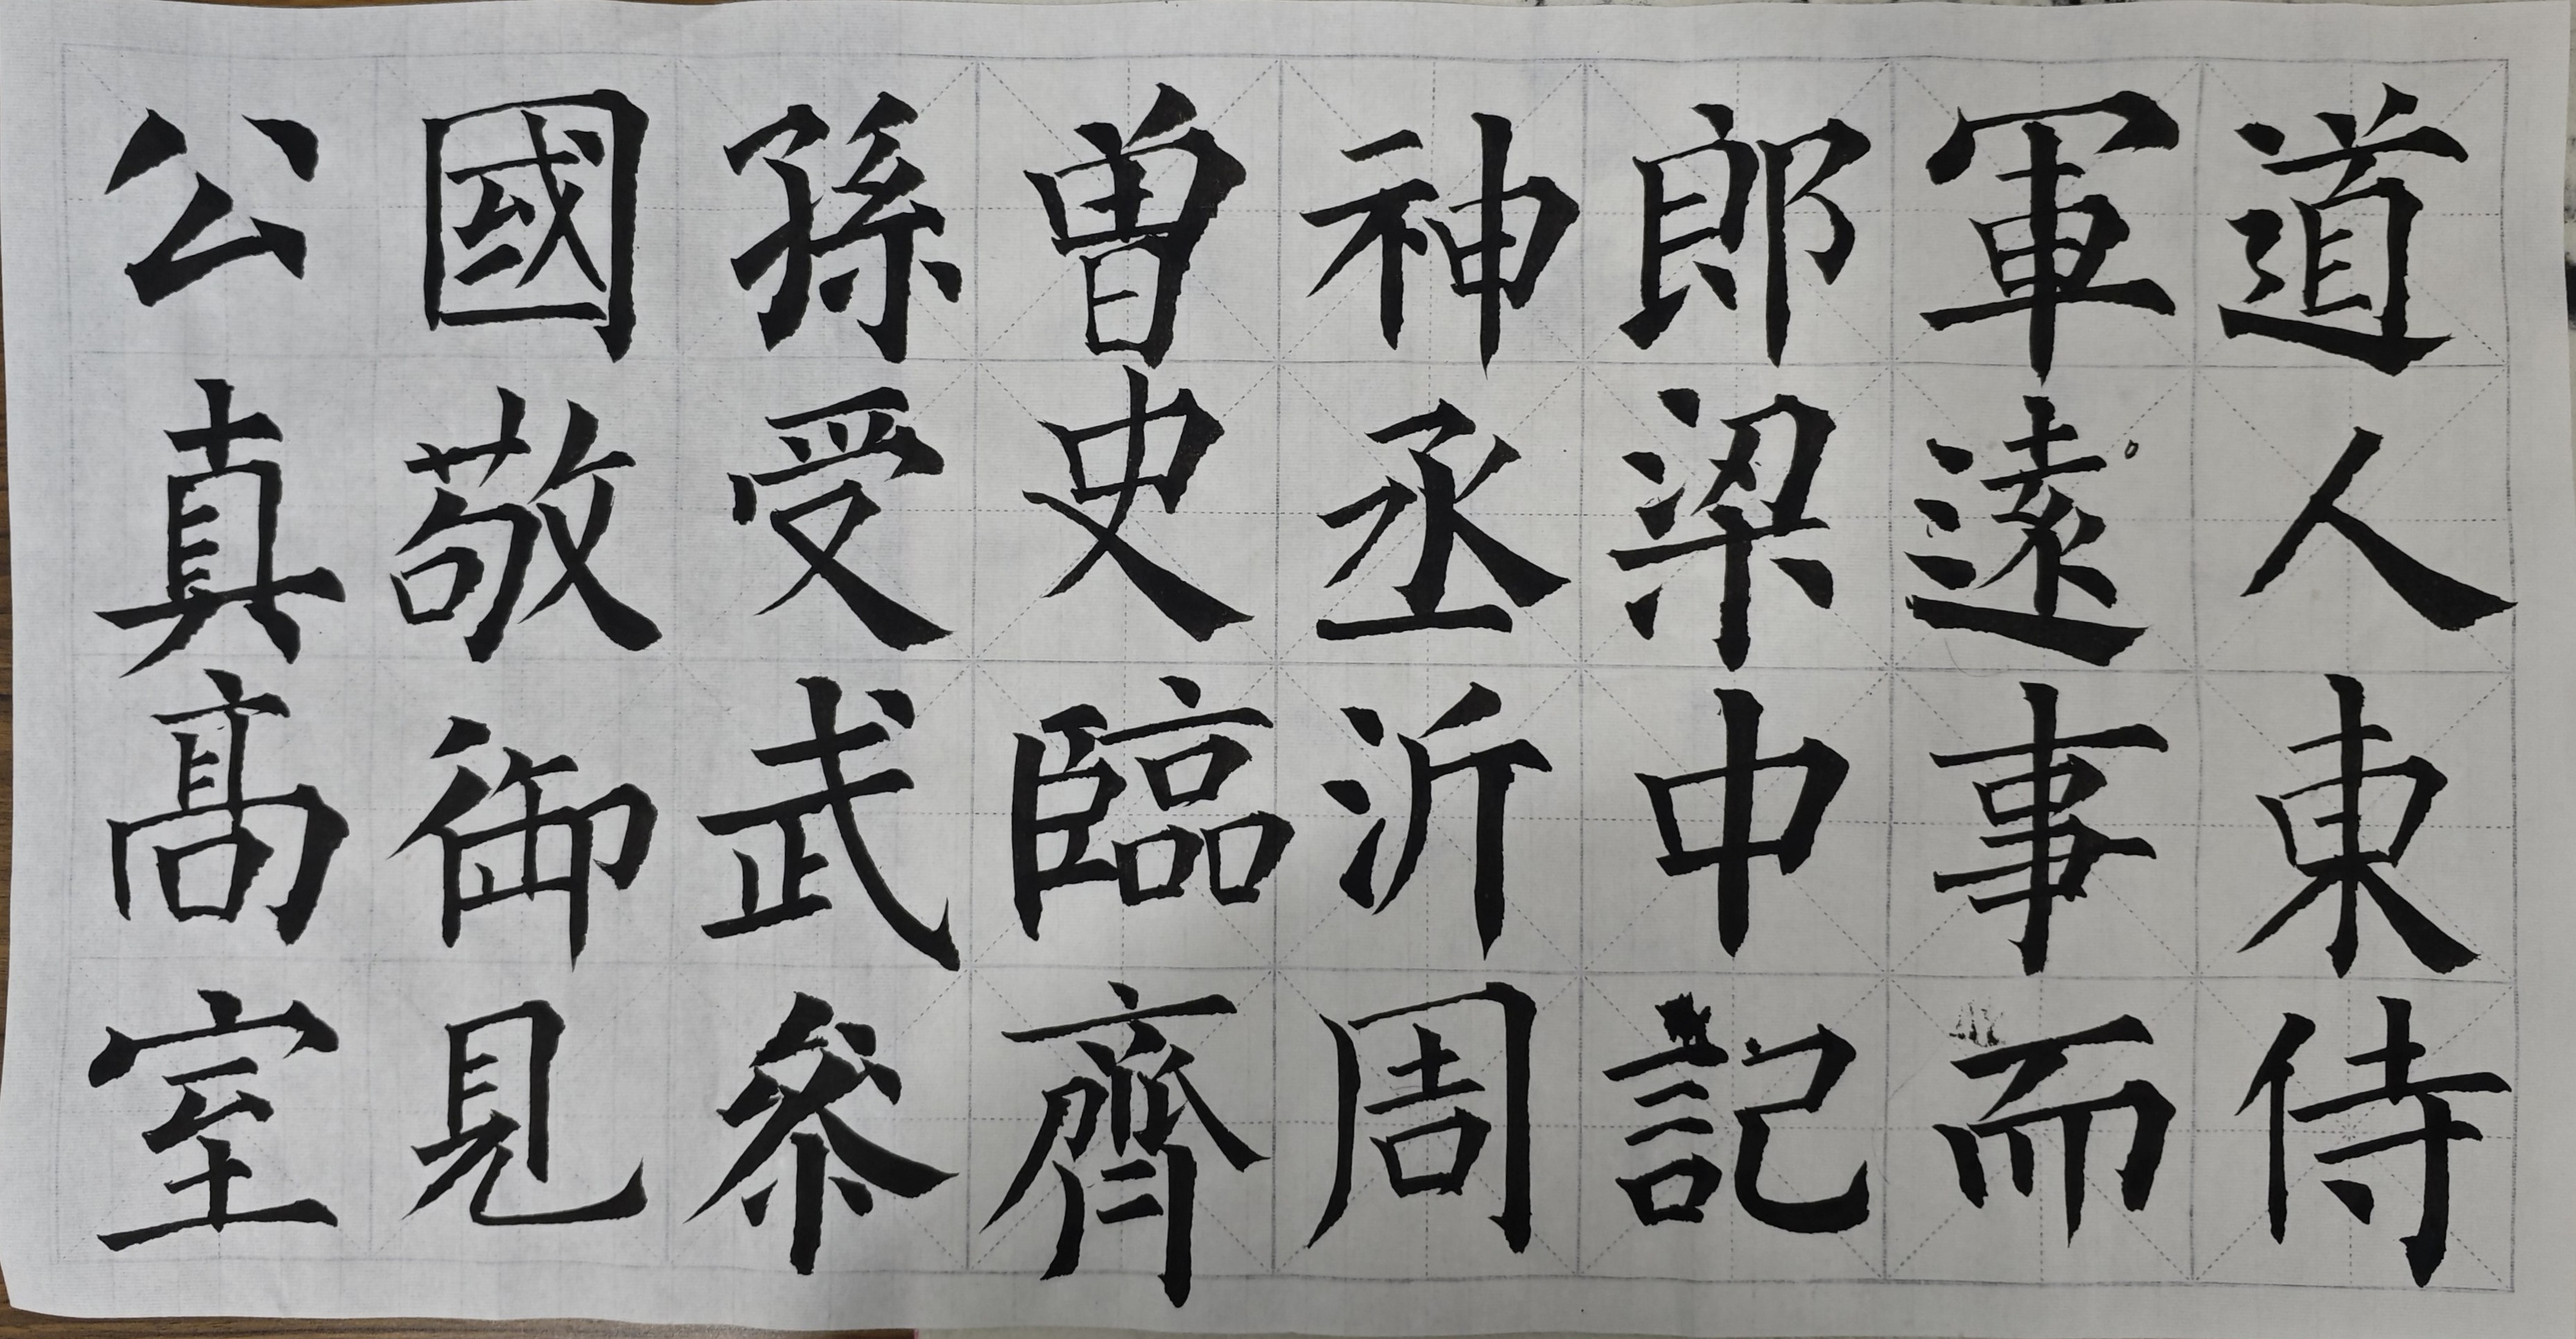 道人東侍
軍遠事而
郎梁中記
神丞沂周
曾史臨齊
孫受武參
國敬御見
公真高室